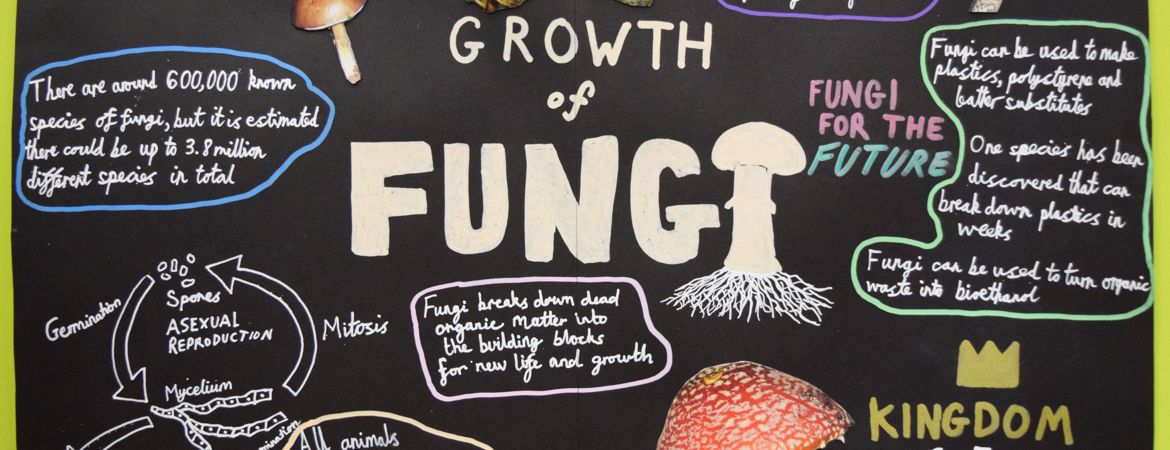 GROWTH
of
FUNGI
There are around 600,000 known
species of fungi, but it is estimated
there could be up to 3.8 million
different species in total
FUNGI
FOR THE
FUTURE
Fungi can be used to make
plastics, polystyrene and
leather substitutes
One species has been
discovered that can
break down plastics in
weeks
Fungi can be used to turn organic
waste into bioethanol
Germination
Spores
ASEXUAL
REPRODUCTION
Mitosis
Mycelium
Fungi breaks down dead
organic matter into
the building blocks
for new life and growth
All animals
KINGDOM